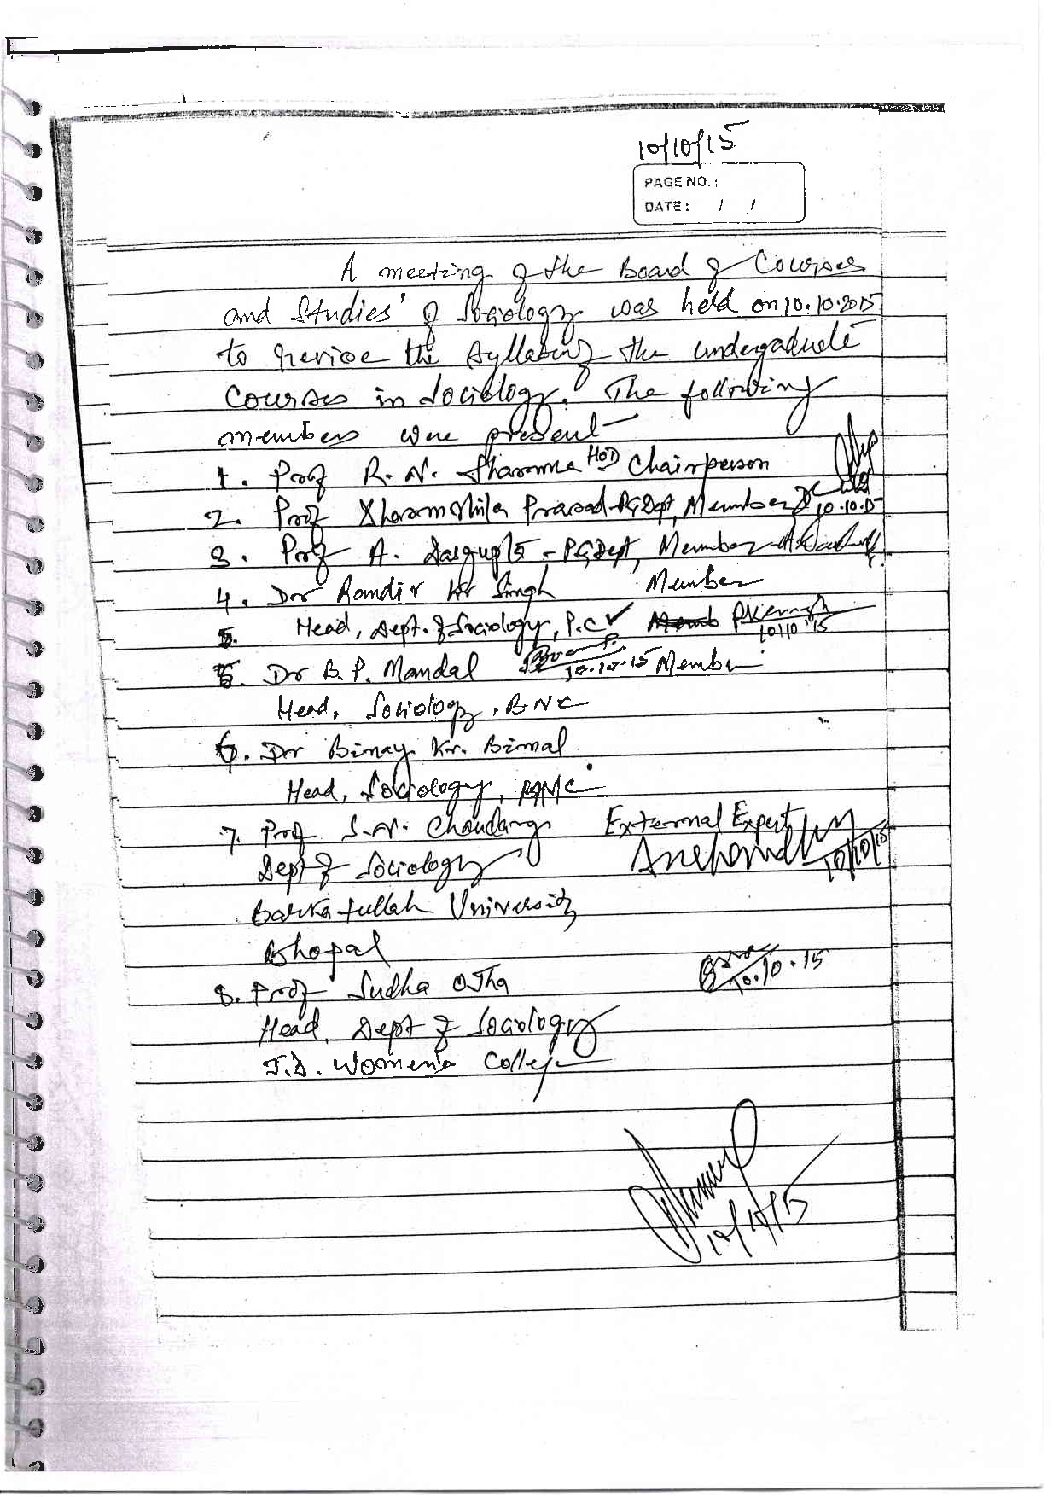 10/10/15
PAGE NO.:
DATE: / /
A meeting of the Board of Courses
and Studies' of Sociology was held on 10.10.2015
to revise the Syllabus of the undergaduate
Courses in Sociology. The following
members were present-
1. Prof R. N. Sharma HOD Chairperson
2. Prof Dharamshila Prasad - PG Dept, Member 10.10.15
3. Prof A. Dasgupta - PG Dept, Member
4. Dr Randir Kr Singh Member
Head, Dept. of Sociology, P.C 10/10/15
5. Dr B. P. Mandal 10.10.15 Member
Head, Sociology, BNC
6. Dr Binay Kr. Bimal
Head, Sociology, RRMC
7. Prof S.N. Choudhary External Expert
Dept of Sociology 10/10/15
Barkatullah University
Bhopal
8. Prof Sudha OJha 10.10.15
Head, Dept of Sociology
J.D. Women's College
10/10/15